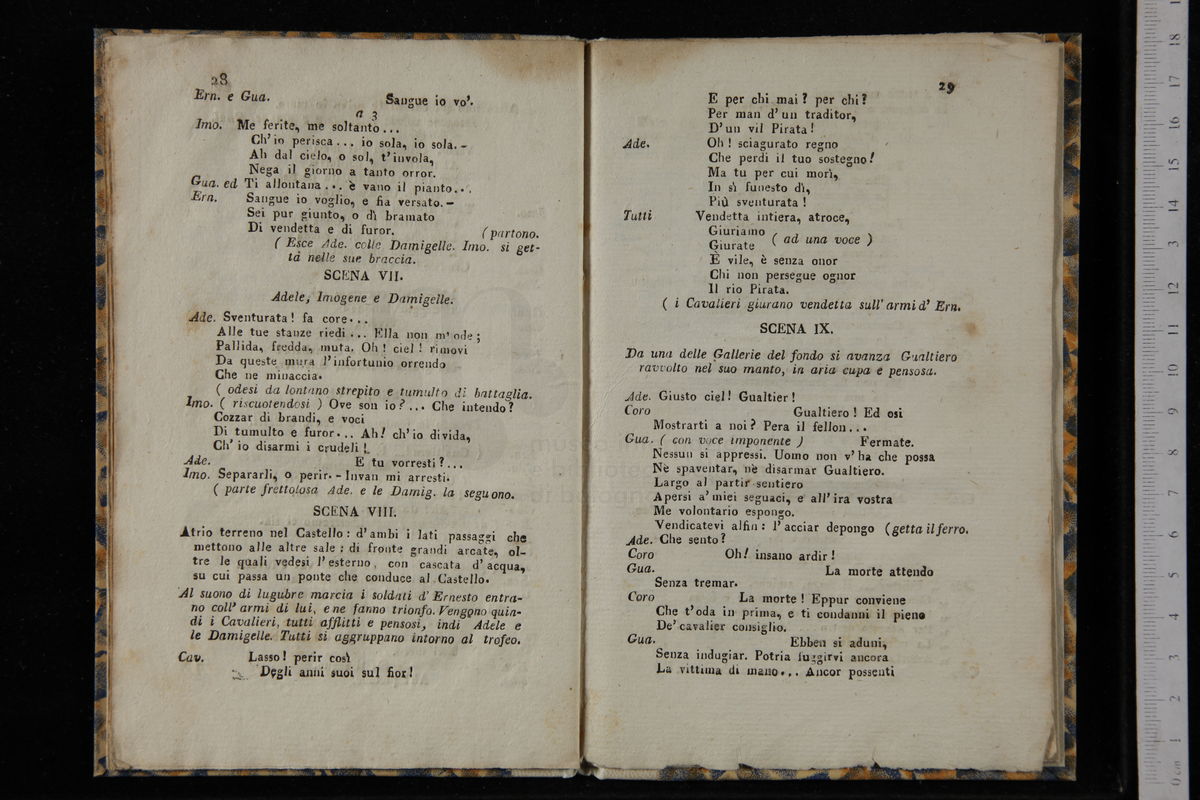 28
Ern. e Gua. Sangue io vo'.
a 3
Imo. Me ferite, me soltanto...
Ch'io perisca... io sola, io sola.-
Ah dal cielo, o sol, t'invola,
Nega il giorno a tanto orror.
Gua. ed Ti allontana... è vano il pianto...
Ern. Sangue io voglio, e fia versato.-
Sei pur giunto, o dì bramato
Di vendetta e di furor. (partono.
( Esce Ade. colle Damigelle. Imo. si get-
ta nelle sue braccia.
SCENA VII.
Adele, Imogene e Damigelle.
Ade. Sventurata! fa core...
Alle tue stanze riedi... Ella non m'ode;
Pallida, fredda, muta. Oh! ciel! rimovi
Da queste mura l'infortunio orrendo
Che ne minaccia.
( odesi da lontano strepito e tumulto di battaglia.
Imo. ( riscuotendosi ) Ove son io?... Che intendo?
Cozzar di brandi, e voci
Di tumulto e furor... Ah! ch'io divida,
Ch'io disarmi i crudeli!
Ade. E tu vorresti?...
Imo. Separarli, o perir.- Invan mi arresti.
( parte frettolosa Ade. e le Damig. la seguono.
SCENA VIII.
Atrio terreno nel Castello: d'ambi i lati passaggi che
mettono alle altre sale: di fronte grandi arcate, ol-
tre le quali vedesi l'esterno, con cascata d'acqua,
su cui passa un ponte che conduce al Castello.
Al suono di lugubre marcia i soldati d'Ernesto entra-
no coll'armi di lui, e ne fanno trionfo. Vengono quin-
di i Cavalieri, tutti afflitti e pensosi, indi Adele e
le Damigelle. Tutti si aggruppano intorno al trofeo.
Cav. Lasso! perir così
Degli anni suoi sul fior!
29
E per chi mai? per chi?
Per man d'un traditor,
D'un vil Pirata!
Ade. Oh! sciagurato regno
Che perdi il tuo sostegno!
Ma tu per cui morì,
In sì funesto dì,
Più sventurata!
Tutti Vendetta intiera, atroce,
Giuriamo
Giurate ( ad una voce )
È vile, è senza onor
Chi non persegue ognor
Il rio Pirata.
( i Cavalieri giurano vendetta sull'armi d'Ern.
SCENA IX.
Da una delle Gallerie del fondo si avanza Gualtiero
ravvolto nel suo manto, in aria cupa e pensosa.
Ade. Giusto ciel! Gualtier!
Coro Gualtiero! Ed osi
Mostrarti a noi? Pera il fellon...
Gua. ( con voce imponente ) Fermate.
Nessun si appressi. Uomo non v'ha che possa
Nè spaventar, nè disarmar Gualtiero.
Largo al partir sentiero
Apersi a'miei seguaci, e all'ira vostra
Me volontario espongo.
Vendicatevi alfin: l'acciar depongo (getta il ferro.
Ade. Che sento?
Coro Oh! insano ardir!
Gua. La morte attendo
Senza tremar.
Coro La morte! Eppur conviene
Che t'oda in prima, e ti condanni il pieno
De'cavalier consiglio.
Gua. Ebben si aduni,
Senza indugiar. Potria fuggirvi ancora
La vittima di mano... Ancor possenti